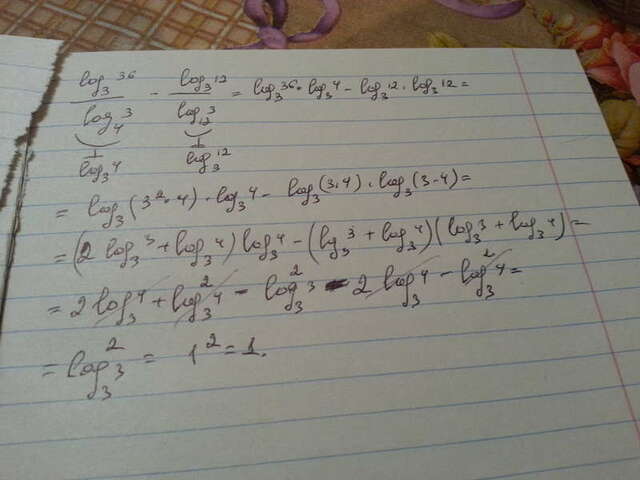 log₃36 / log₄3 - log₃12 / log₁₂3 = log₃36 · log₃4 - log₃12 · log₃12 =
1/log₃4 1/log₃12
= log₃(3²·4) · log₃4 - log₃(3·4) · log₃(3·4) =
= (2 log₃3 + log₃4) log₃4 - (log₃3 + log₃4)(log₃3 + log₃4) =
= 2 log₃4 + log₃²4 - log₃²3 - 2 log₃4 - log₃²4 =
= log₃²3 = 1² = 1.